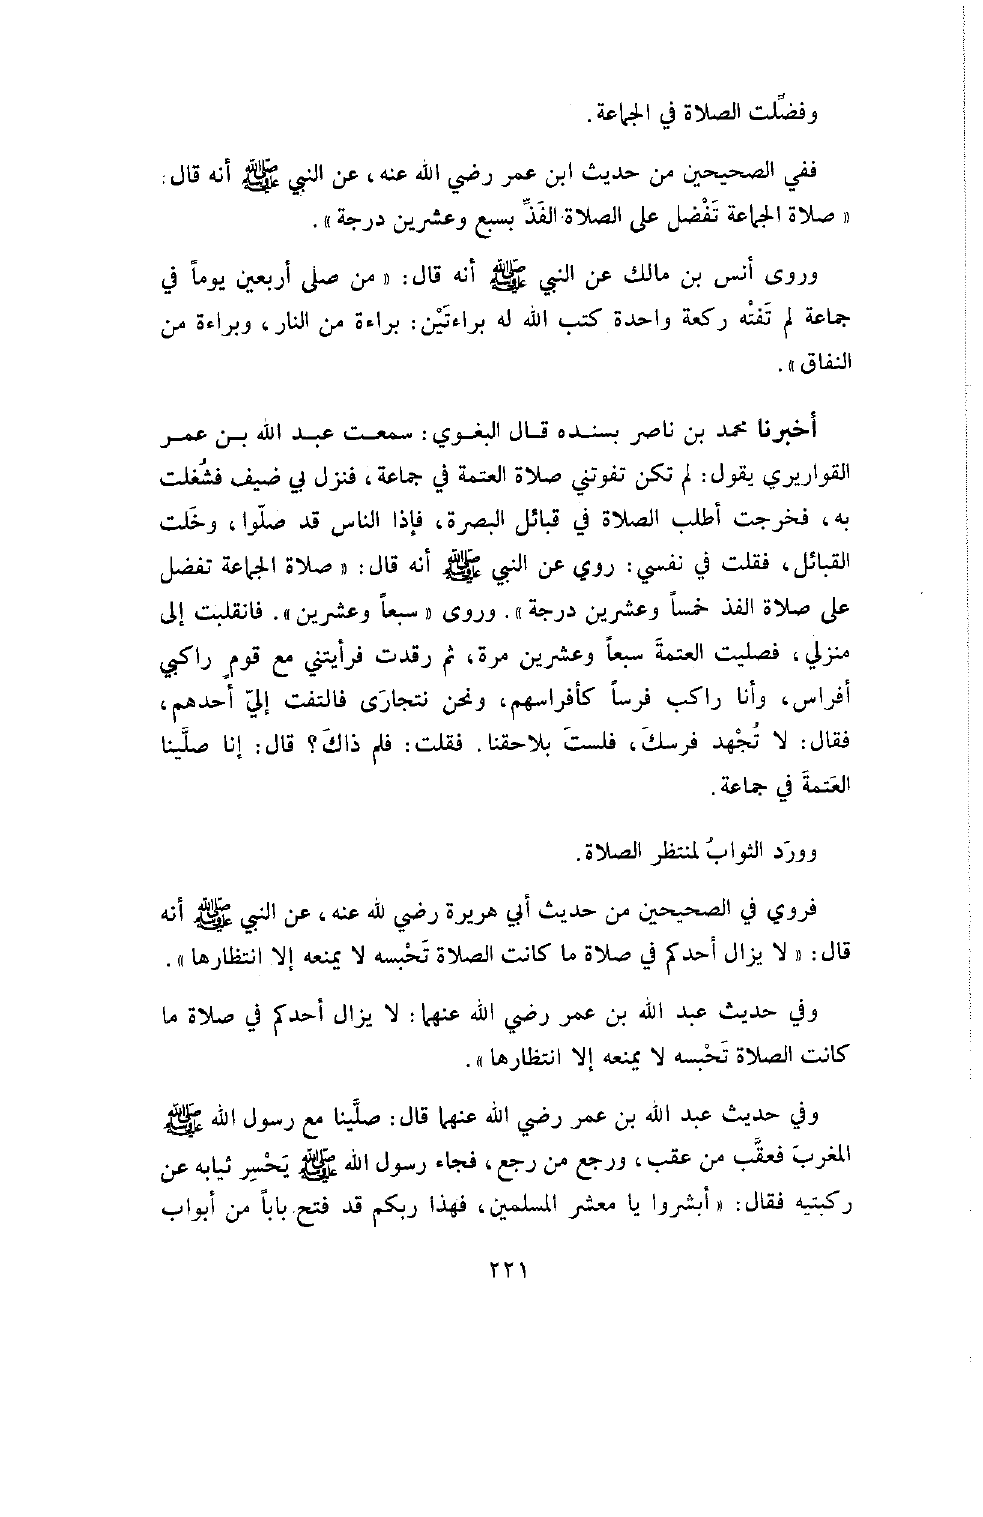 وفضِّلت الصلاة في الجماعة .
ففي الصحيحين من حديث ابن عمر رضي الله عنه ، عن النبي ﷺ أنه قال :
« صلاة الجماعة تَفْضل على الصلاة الفَذِّ بسبع وعشرين درجة » .
وروى أنس بن مالك عن النبي ﷺ أنه قال : « من صلى أربعين يوماً في
جماعة لم تَفتْه ركعة واحدة كتب الله له براءتَيْن : براءة من النار ، وبراءة من
النفاق » .
أخبرنا محمد بن ناصر بسنده قال البغوي : سمعت عبد الله بن عمر
القواريري يقول : لم تكن تفوتني صلاة العتمة في جماعة ، فنزل بي ضيف فشُغلت
به ، فخرجت أطلب الصلاة في قبائل البصرة ، فإذا الناس قد صلّوا ، وخَلت
القبائل ، فقلت في نفسي : روي عن النبي ﷺ أنه قال : « صلاة الجماعة تفضل
على صلاة الفذ خمساً وعشرين درجة » . وروى « سبعاً وعشرين » . فانقلبت إلى
منزلي ، فصليت العتمةَ سبعاً وعشرين مرة ، ثم رقدت فرأيتني مع قومٍ راكبي
أفراس ، وأنا راكب فرساً كأفراسهم ، ونحن نتجارَى فالتفت إليّ أحدهم ،
فقال : لا تُجْهد فرسكَ ، فلستَ بلاحقنا . فقلت : فلم ذاكَ ؟ قال : إنا صلَّينا
العَتمةَ في جماعة .
وورَد الثوابُ لمنتظر الصلاة .
فروي في الصحيحين من حديث أبي هريرة رضي لله عنه ، عن النبي ﷺ أنه
قال : « لا يزال أحدكم في صلاة ما كانت الصلاة تَحْبسه لا يمنعه إلا انتظارها » .
وفي حديث عبد الله بن عمر رضي الله عنهما : لا يزال أحدكم في صلاة ما
كانت الصلاة تَحْبسه لا يمنعه إلا انتظارها » .
وفي حديث عبد الله بن عمر رضي الله عنهما قال : صلَّينا مع رسول الله ﷺ
المغربَ فعقَّب من عقب ، ورجع من رجع ، فجاء رسول الله ﷺ يَحْسِر ثيابه عن
ركبتيه فقال : « أبشروا يا معشر المسلمين ، فهذا ربكم قد فتح باباً من أبواب
٢٢١